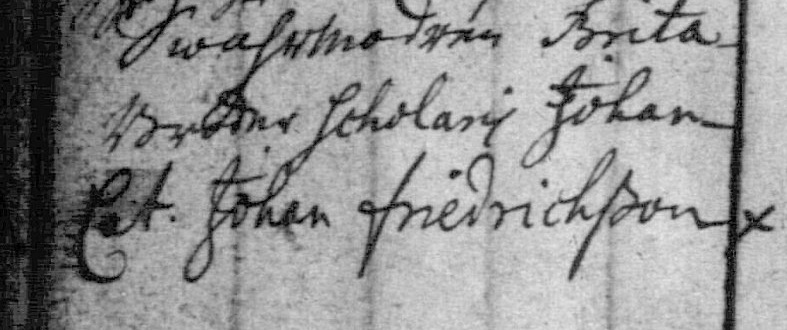 Swährmodren Brita
Broder Scholaris Johan
Johan Friedrichsson x